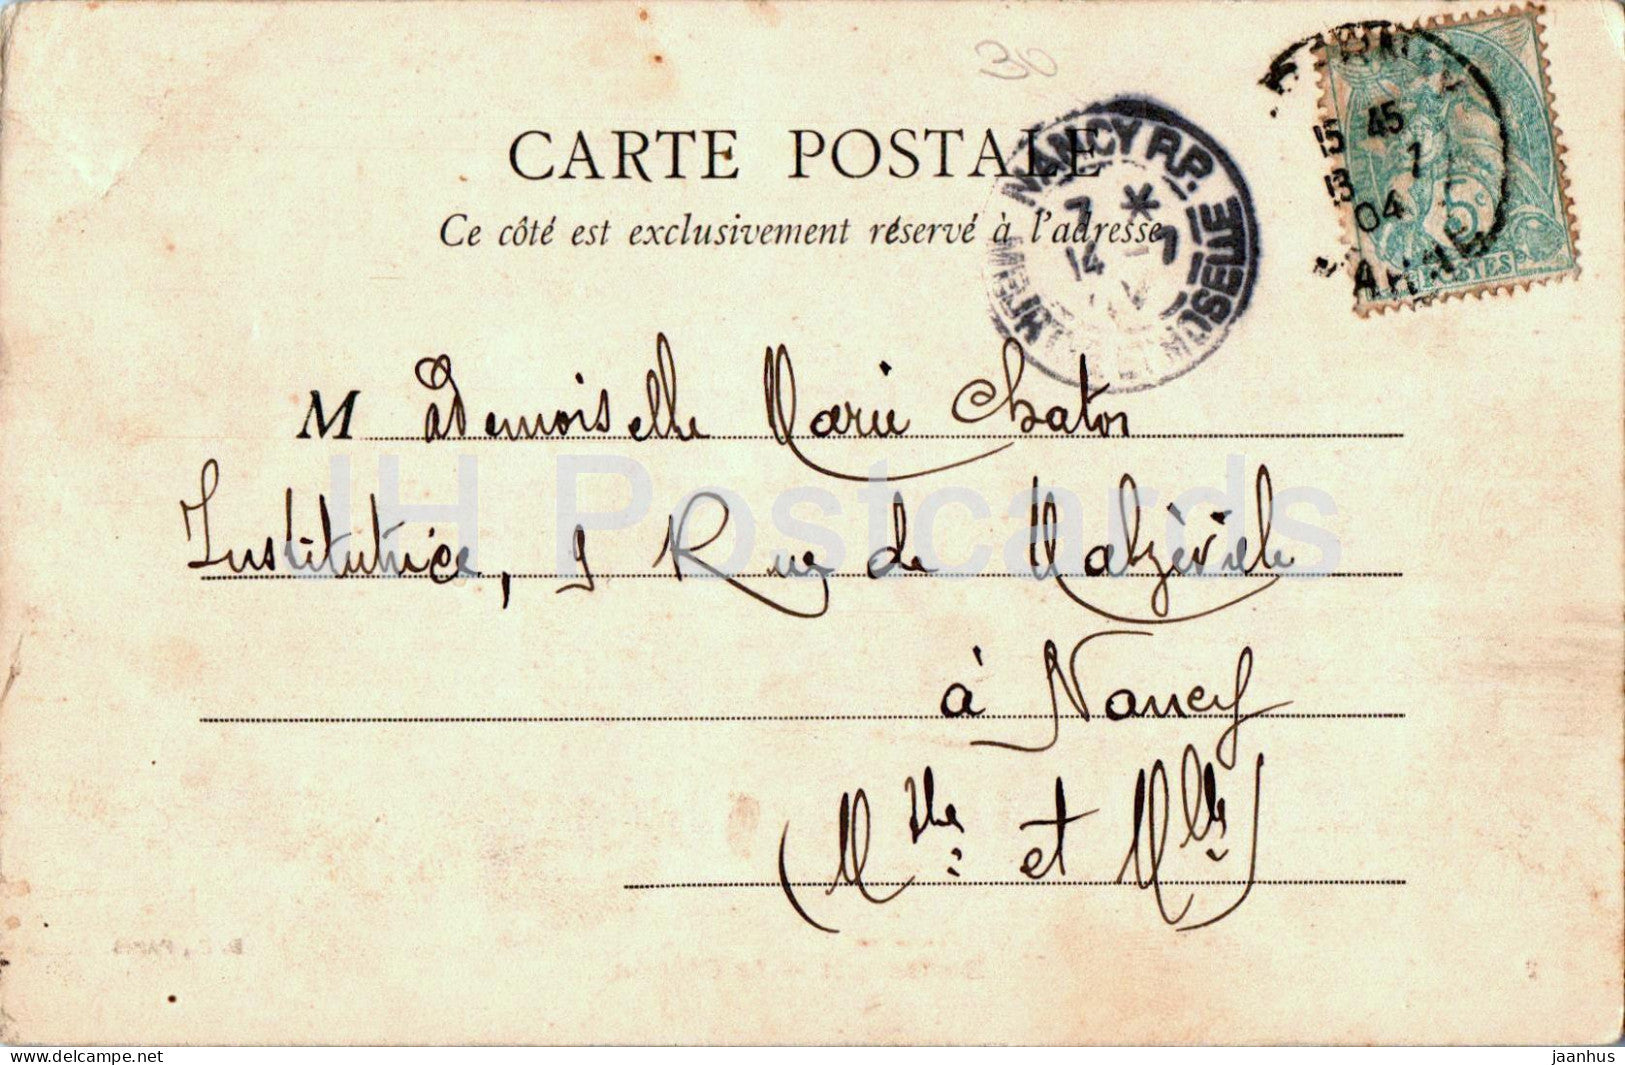 30
CARTE POSTALE
Ce côté est exclusivement réservé à l'adresse
NANCY R.P.
MEURTHE ET MOSELLE
7 *
14 - 7
04
15 45
13 1
04
5c
POSTES
Mademoiselle Marie Chaton
Institutrice, 9 Rue de Malzéville
à Nancy
(Mthe et Mlle)
IH Postcards
delcampe.net
jaanhus